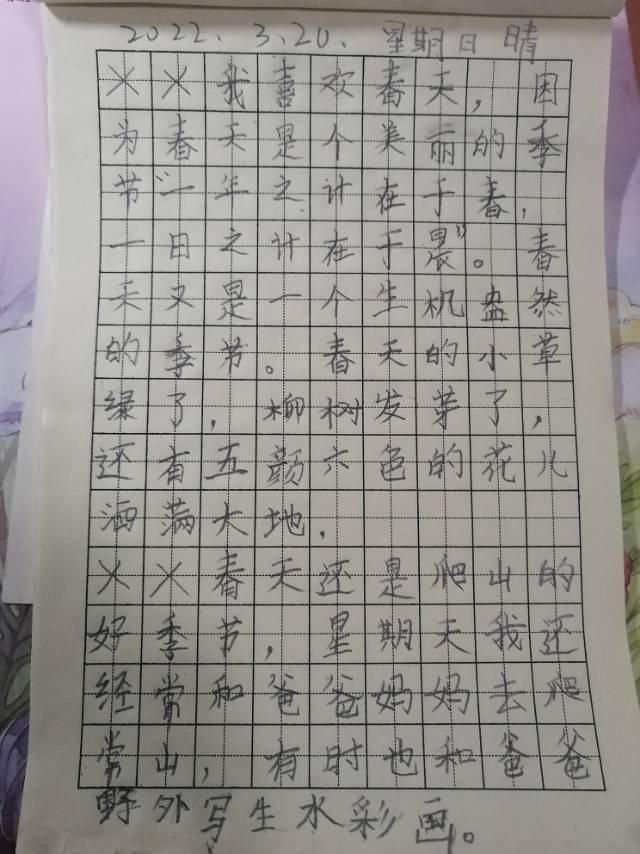 2022. 3.20. 星期日 晴
××我喜欢春天,因
为春天是个美丽的季
节“一年之计在于春,
一日之计在于晨”。春
天又是一个生机盎然
的季节。春天的小草
绿了,柳树发芽了,
还有五颜六色的花儿
洒满大地,
××春天还是爬山的
好季节,星期天我还
经常和爸爸妈妈去爬
常山,有时也和爸爸
野外写生水彩画。